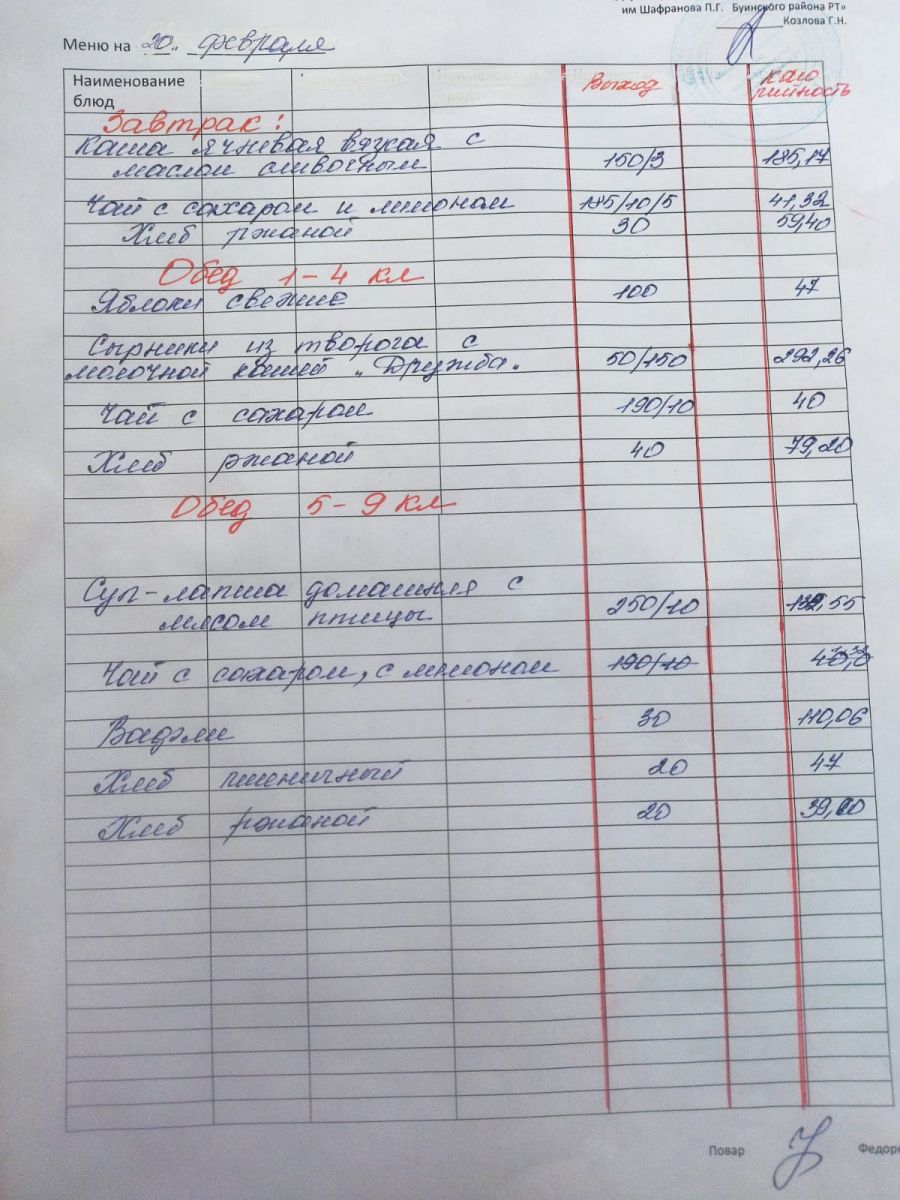 им Шафранова П.Г. Буинского района РТ»
Козлова Г.Н.
Меню на 20.. февраля
Наименование блюд Выход кало рийность
Завтрак:
Каша ячневая вязкая с
маслом сливочным 150/3 185,17
Чай с сахаром и лимоном 185/10/5 41,32
Хлеб ржаной 30 59,40
Обед 1-4 кл
Яблоки свежие 100 47
Сырники из творога с
молочной кашей "Дружба" 50/150 292,26
Чай с сахаром 190/10 40
Хлеб ржаной 40 79,20
Обед 5-9 кл
Суп-лапша домашняя с
мясом птицы 250/10
Чай с сахаром, с лимоном 190/10
Вафли 30 110,06
Хлеб пшеничный 20 47
Хлеб ржаной 20
Повар Федоре